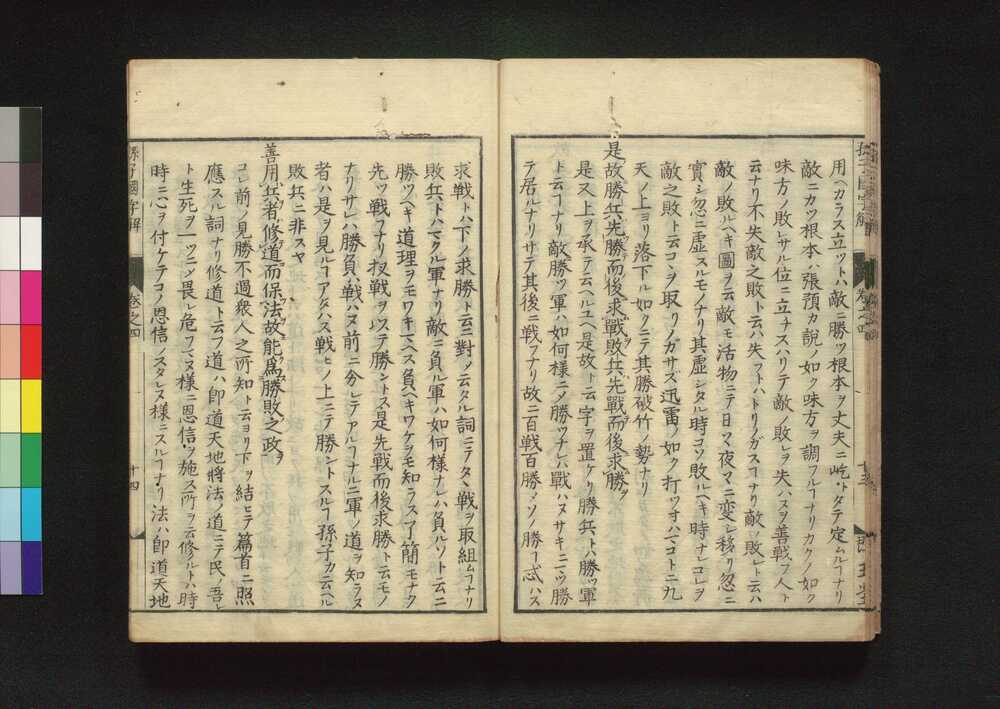 用ヘカラス立ツトハ敵ニ勝ツ根本ヲ丈夫ニ屹トタテ定ムルフナリ
敵ニカツ根本ハ張預カ説ノ如ク味方ヲ調フルフナリカクノ如ク
味方ノ敗レサル位ニ立チスハリテ敵ノ敗レヲ失ハスヲ善戦フ人ト
云ナリ不失敵之敗ト云ハ失フトハトリノガスフナリ敵ノ敗レト云ハ
敵ノ敗ルヘキ圖ヲ云敵モ活物ニテ日マ夜マニ変シ移リ忽ニ
實シ忽ニ虚スルモノナリ其虚シタル時コソ敗ルヘキ時ナレコレヲ
敵之敗ト云コヽヲ取リノガサズ迅雷ノ如ク打ツオハマコトニ九
天ノ上ヨリ落下ル如クニテ其勝破竹ノ勢ナリ
是故勝兵先勝而後求戦敗兵先戰而後求勝
是又上ヲ承テ云ヘルユヘ是故ト云字ヲ置ケリ勝兵トハ勝ツ軍
ト云フナリ敵ニ勝ツ軍ハ如何様ニメ勝ツナレハ戰ハヌサキニマツ勝
テ居ルナリサテ其後ニ戦フナリ故ニ百戦百勝メソノ勝フ忒ハス
求戦トハ下ノ求勝ト云ニ對メ云タル詞ニテタヽ戦ヲ取組ムフナリ
敗兵トハマクル軍ナリ敵ニ負ル軍ハ如何様ナレハ負ルソト云ニ
勝ツヘキ道理ヲモワキマヘス負ヘキワケヲモ知ラス了簡モナク
先ツ戦フナリ扨戦ヲハステ勝ントス是先戦而後求勝ト云モノ
ナリサレハ勝負ハ戦ハヌ前ニ分レテアルフナルニ軍ノ道ヲ知ラヌ
者ハ是ヲ見ルフアタハス戦ヒノ上ニテ勝ントスルフ孫子カ云ヘル
敗兵ニ非スヤ
善用兵者修道而保法故能爲勝敗之政
コレ前ノ見勝不過衆人之所知ト云ヨリ下ヲ結ヒテ篇首ニ照
應スル詞ナリ修道ト云フ道ハ即道天地將法ノ道ニテ民ノ吾レ
ト生死ヲ一ツニメ畏レ危フマヌ様ニ恩信ヲ施ス所ヲ云修ルトハ時
時ニ心ヲ付ケテコノ恩信ノスタレヌ様ニスルフナリ法ハ即道天地
孫子國字解
卷之四
十四